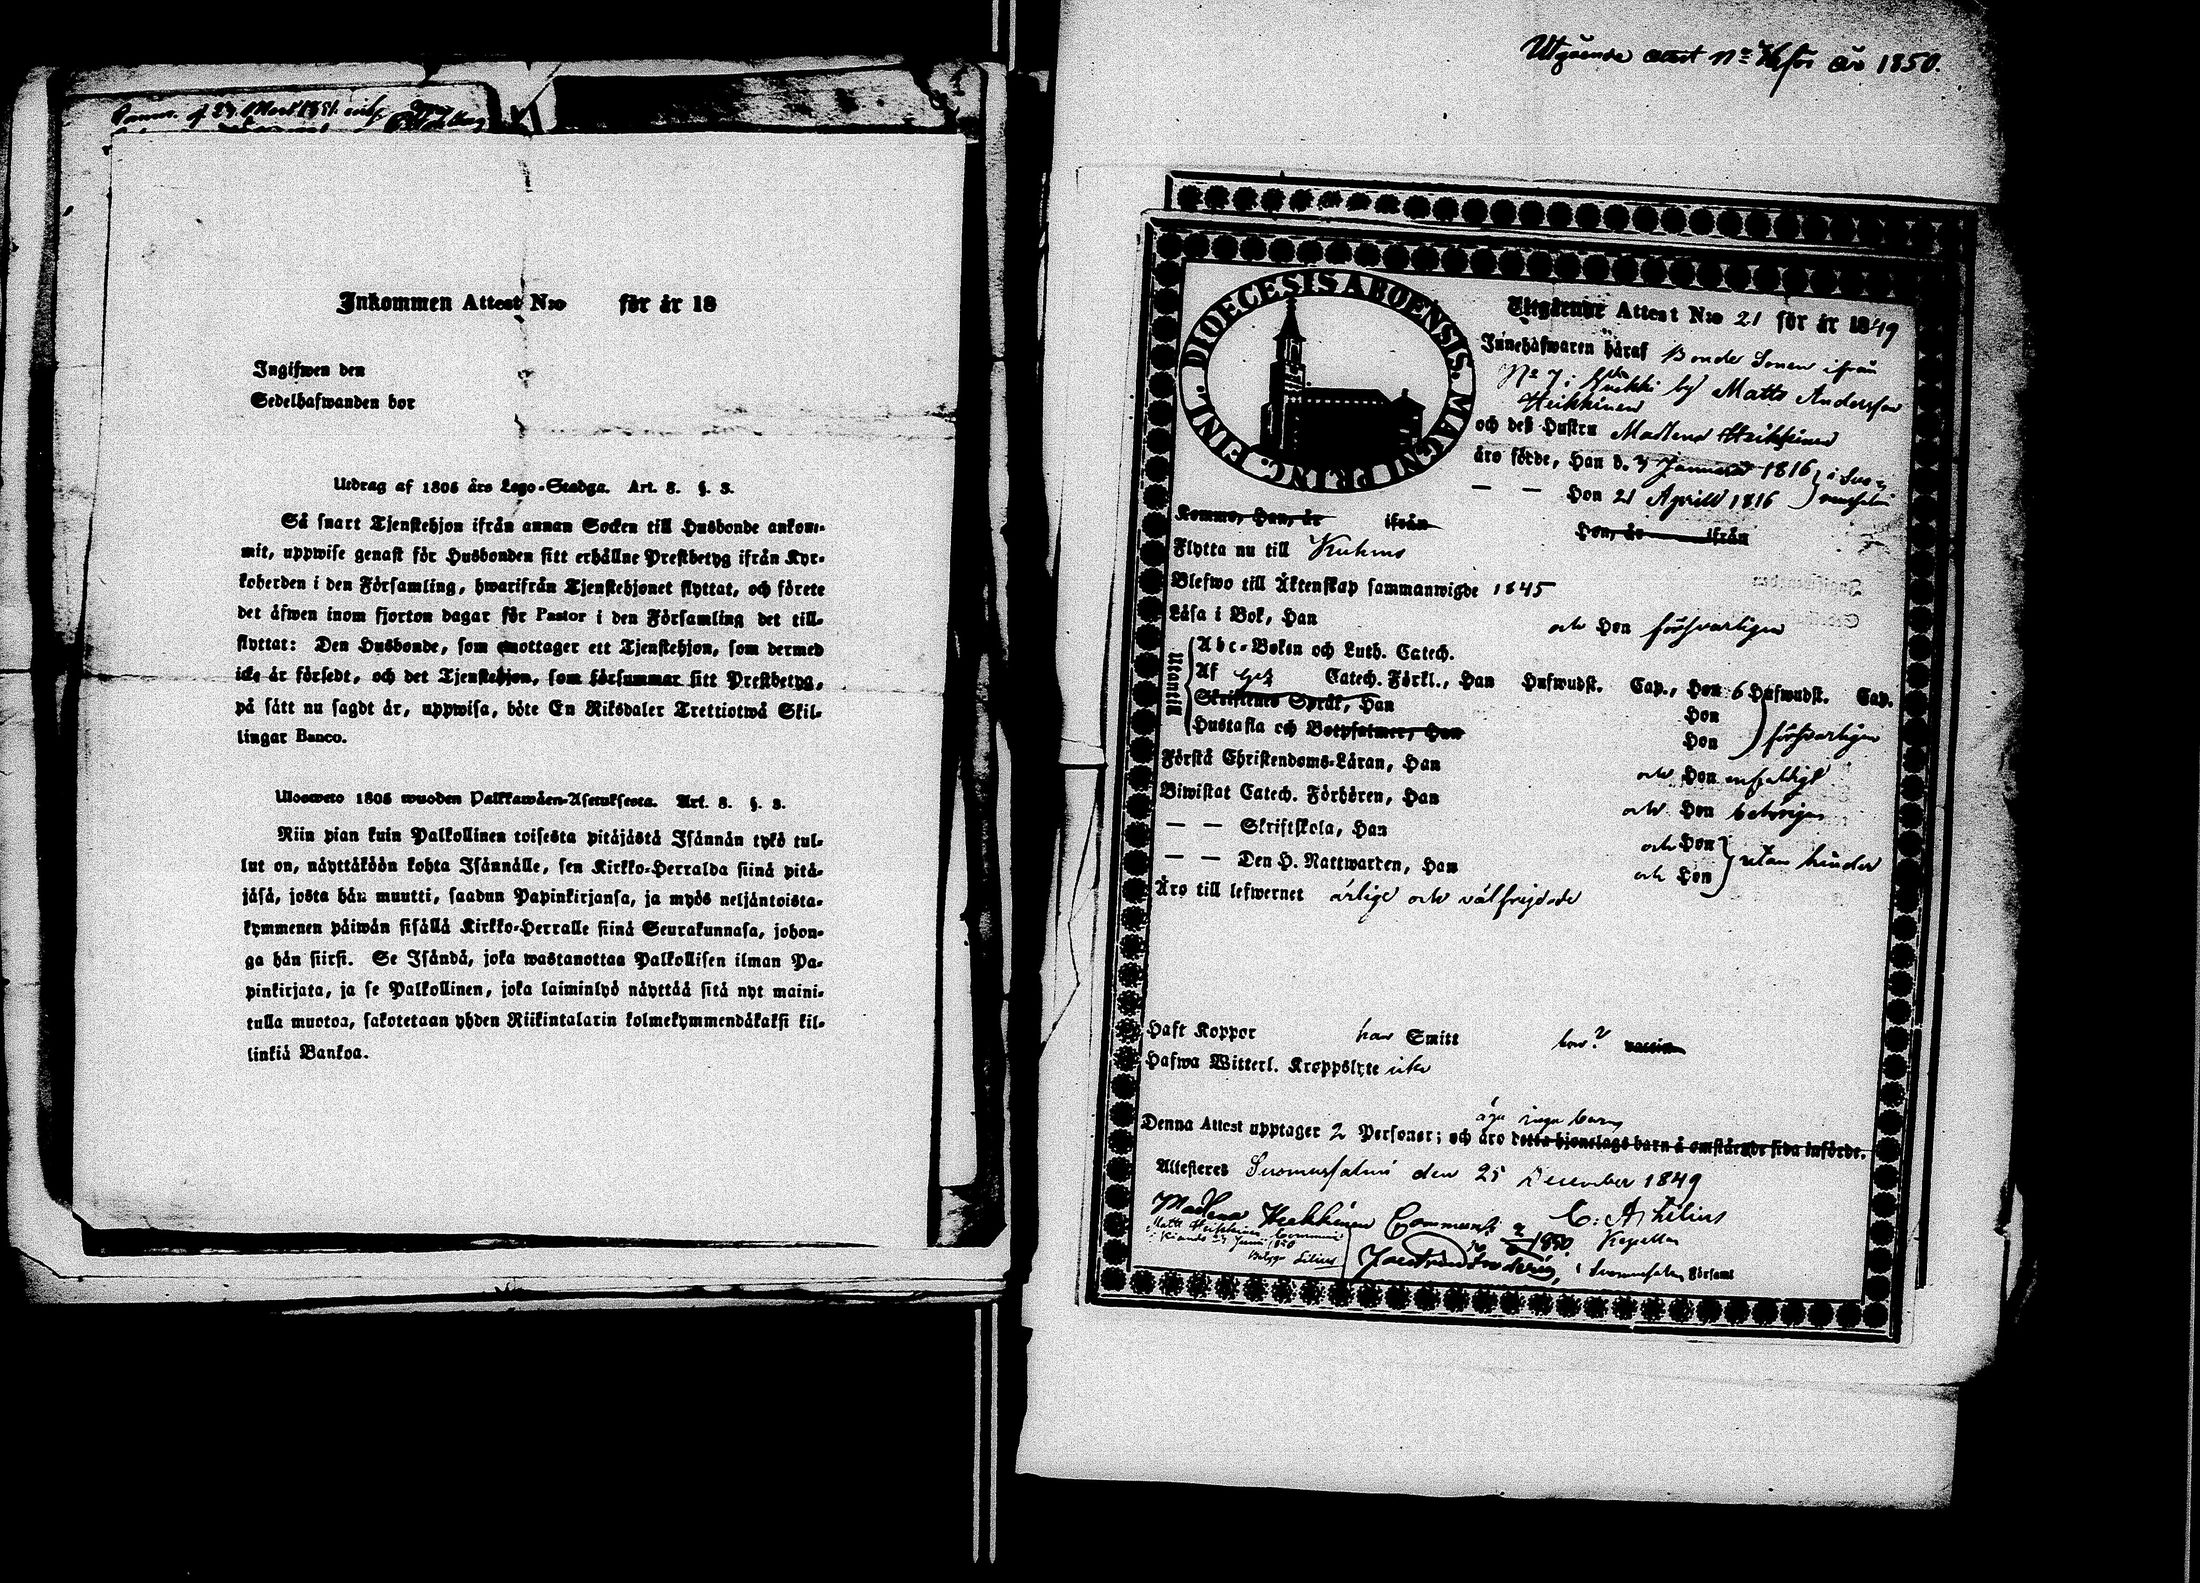 Inkommen Attest N:o för år 18
Ingifwen den
Sedelhafwanden bor
Utdrag af 1805 års Lego-Stadga. Art. 8. §. 3.
Så snart Tjenstehjon ifrån annan Socken till Husbonde ankom-
mit, uppwise genast för Husbonden sitt erhållne Prestbetyg ifrån Kyr-
koherden i den Församling, hwarifrån Tjenstehjonet flyttat, och förete
det äfwen inom fjorton dagar för Pastor i den Församling det till-
flyttat: Den Husbonde, som emottager ett Tjenstehjon, som dermed
icke är försedt, och det Tjenstehjon, som försummar sitt Prestbetyg,
på sätt nu sagdt är, uppwisa, böte En Riksdaler Trettiotwå Skil-
lingar Banco.
Ulosweto 1805 wuoden Palkkawäen-Asetuksesta. Art. 8. §. 3.
Niin pian kuin Palkollinen toisesta pitäjästä Isännän tykö tul-
lut on, näyttäköön kohta Isännälle, sen Kirkko-Herralda siinä pitä-
jäsä, josta hän muutti, saadun Papinkirjansa, ja myös neljäntoista-
kymmenen päiwän sisällä Kirkko-Herralle siinä Seurakunnasa, johon-
ga hän siirsi. Se Isändä, joka wastanottaa Palkollisen ilman Pa-
pinkirjata, ja se Palkollinen, joka laiminlyö näyttää sitä nyt maini-
tulla muotoa, sakotetaan yhden Riikintalarin kolmekymmendäkaksi kil-
linkiä Bankoa.
Utgående attest N:o för år 1850.
FINL. DIOECESIS ABOENSIS. MAGNI PRINC.
Utgående Attest N:o 21 för år 1849
Innehafwaren häraf Bonde Sonen ifrån
N:o 7 i by Matts Andersson
Heikkinen
och deß Hustru Madlena Heikkinen
äro födde, Han d. 3 Januarii 1816 i Suo-
— — Hon 21 Aprill 1816 mussalmi
Komne, Han, år ifrån Hon, år ifrån
Flytta nu till Kuhmo
Blefwo till Äktenskap sammanwigde 1845
Läsa i Bok, Han och Hon försvarligen
Utantill
Abc-Boken och Luth. Catech.
Af Catech. Förkl., Han Hufwudst. Cap., Hon 6 Hufwudst. Cap.
Skriftenes Språk, Han Hon
Hustafla och Botpsalmer, Han Hon försvarligen
Förstå Christendoms-Läran, Han och Hon enfaldigt
Biwistat Catech. Förhören, Han och Hon behörigen
— — Skriftskola, Han och Hon
— — Den H. Nattwarden, Han och Hon utan hinder
Äro till lefwernet ärlige och välfrejdade
Haft Koppor han Smitt hon? vaccin
Hafwa Witterl. Kroppslyte icke
äga inga barn
Denna Attest upptager 2 Personer; och äro detta hjonelags barn å omstående sida införde.
Attesteres Suomussalmi den 25 December 1849
Madlena Heikkinen Commun. 1850 C: Athelius
Matts Heikkinen Kapellan
Juni 1850
i Suomussalmi Församl